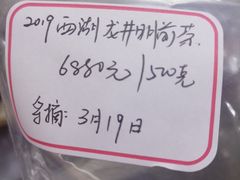 2019西湖龙井明前茶.
6880元/500克
采摘:3月19日